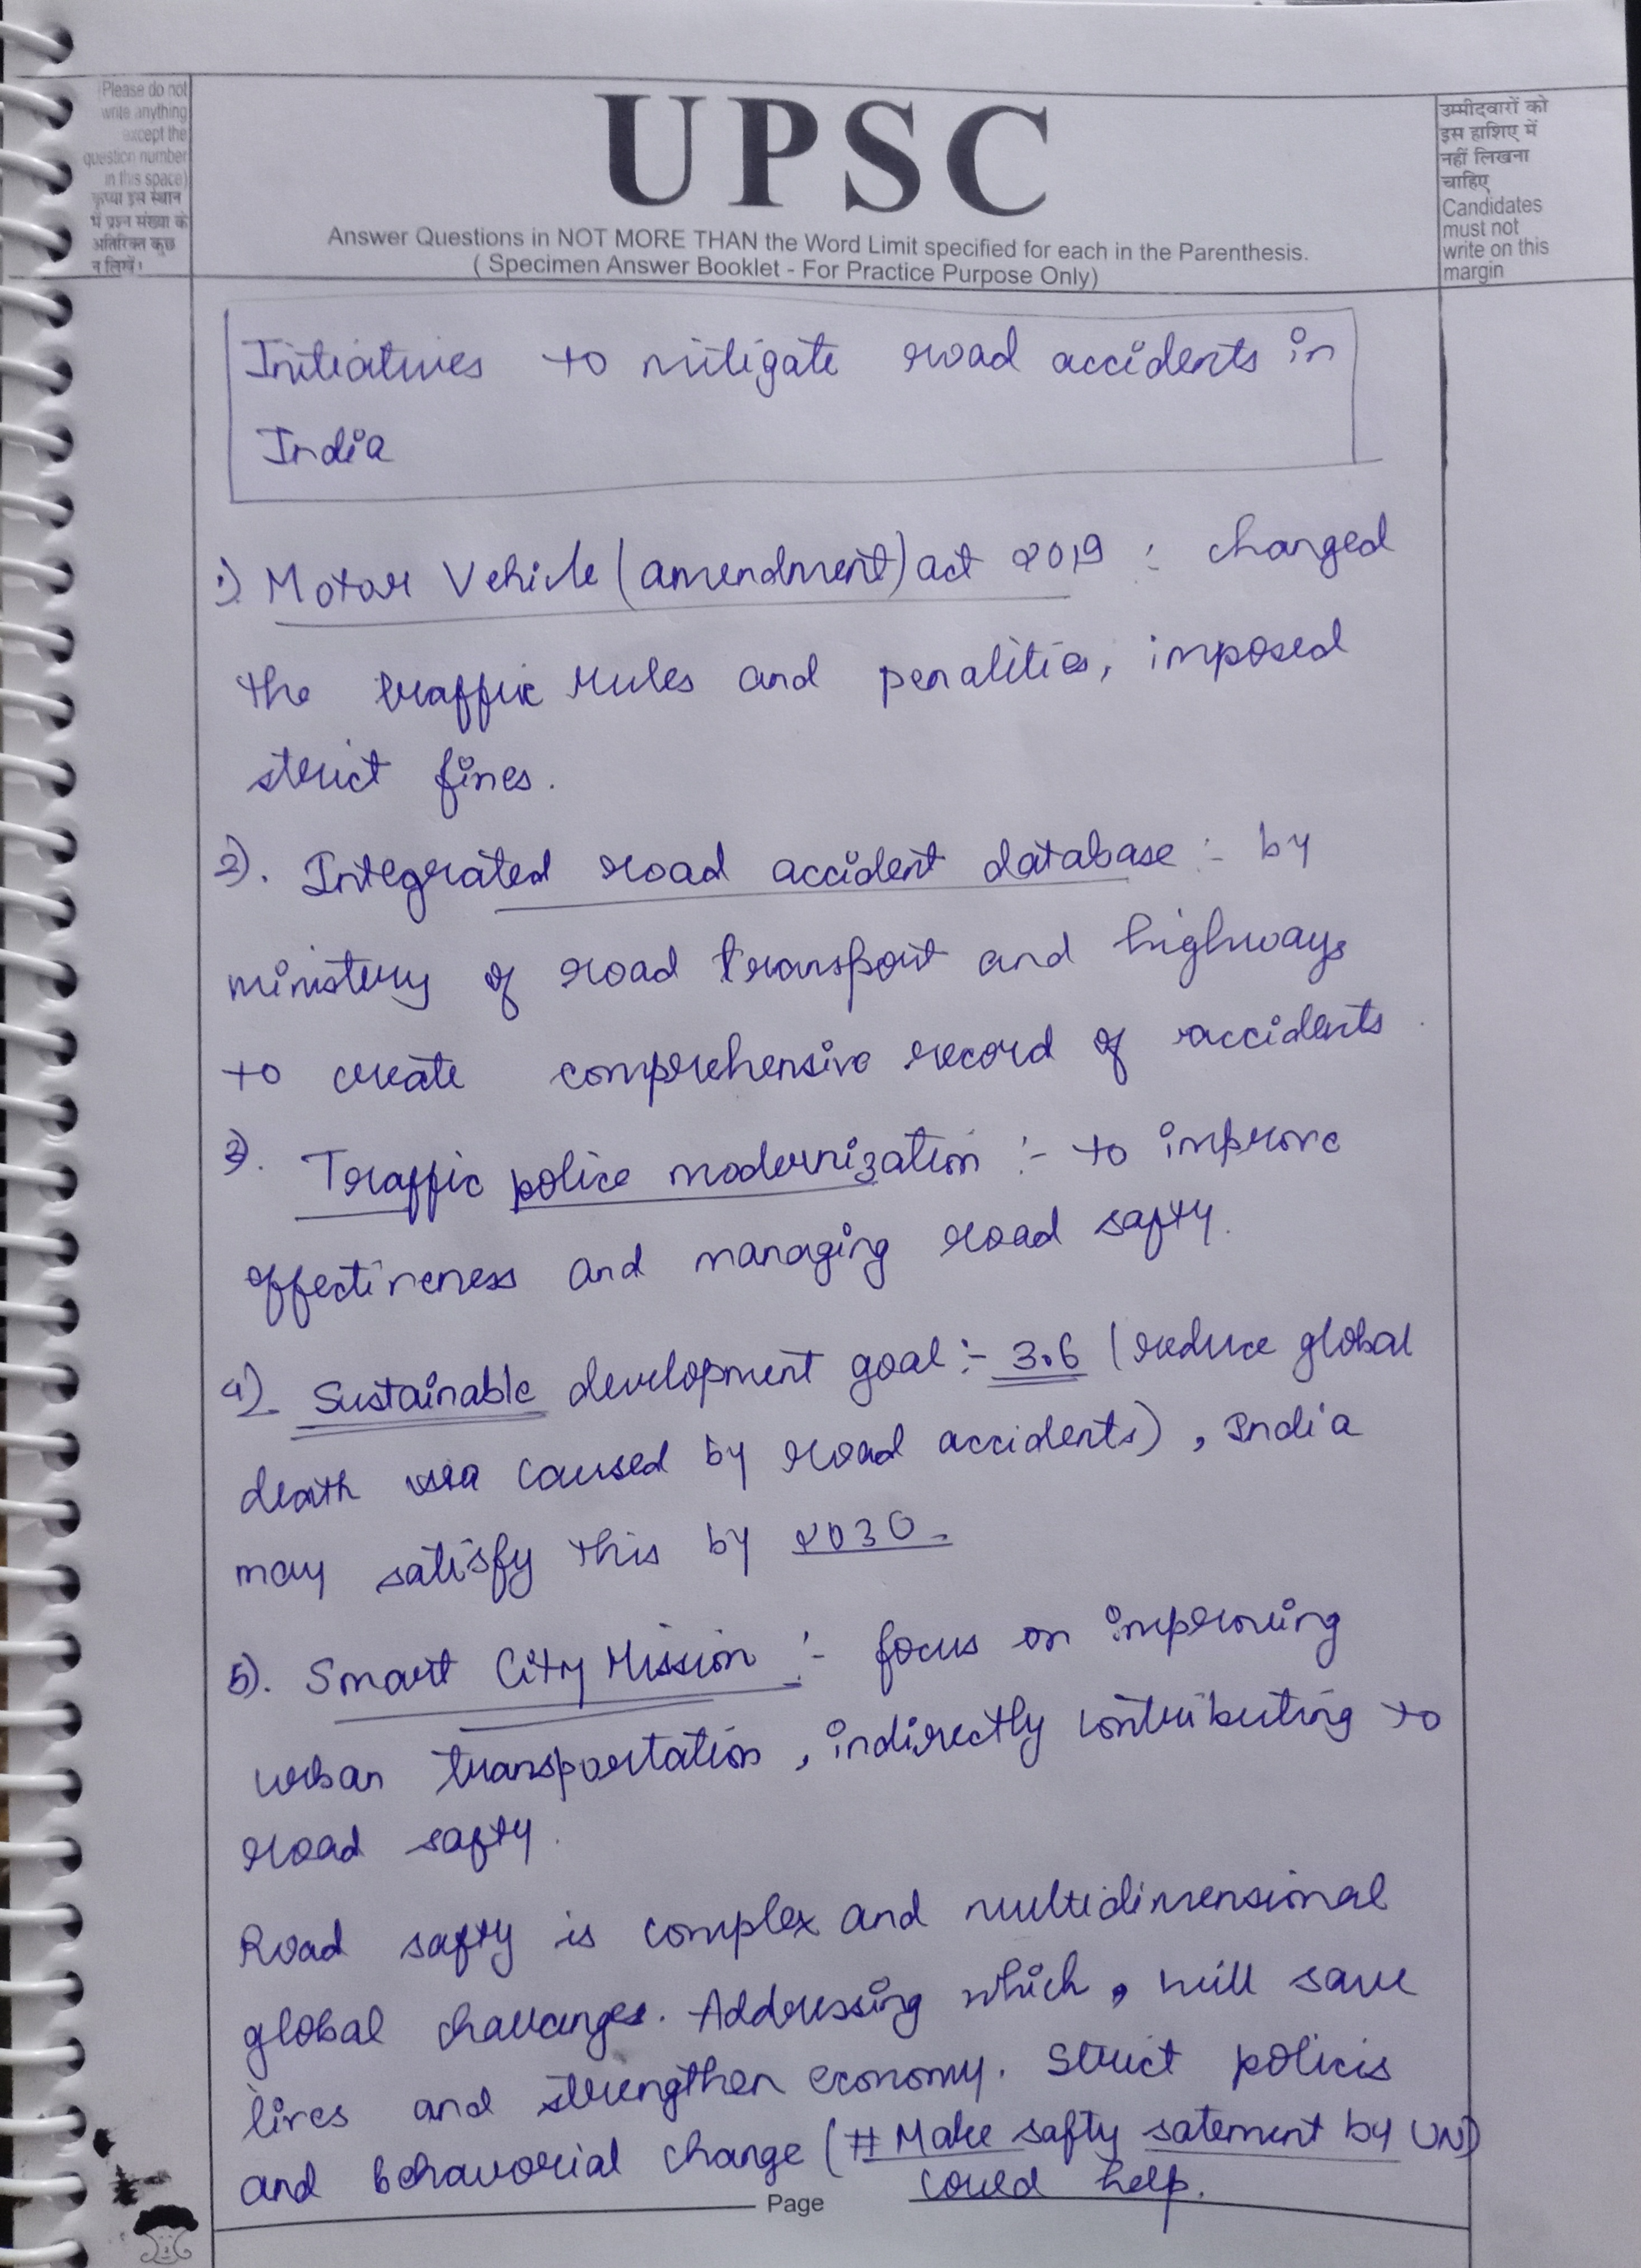 Please do not
write anything
except the
question number
in this space)
कृप्या इस स्थान
में प्रश्न संख्या के
अतिरिक्त कुछ
न लिखें।
UPSC
Answer Questions in NOT MORE THAN the Word Limit specified for each in the Parenthesis.
( Specimen Answer Booklet - For Practice Purpose Only)
उम्मीदवारों को
इस हाशिए में
नहीं लिखना
चाहिए
Candidates
must not
write on this
margin
Initiatives to mitigate road accidents in
India
1) Motor Vehicle (amendment) act 2019 : changed
the traffic rules and penalities, imposed
strict fines.
2). Integrated road accident database :- by
ministry of road transport and highways
to create comprehensive record of accidents.
3. Traffic police modernization :- to improve
effectiveness and managing road safty.
4) Sustainable development goal :- 3.6 (reduce global
death caused by road accidents), India
may satisfy this by 2030.
5). Smart City Mission :- focus on improving
urban transportation, indirectly contributing to
road safty.
Road safty is complex and multidimensional
global challanges. Addressing which, will save
lives and strengthen economy. Strict policis
and behavorial change (# Make safty satement by UN)
could help.
Page